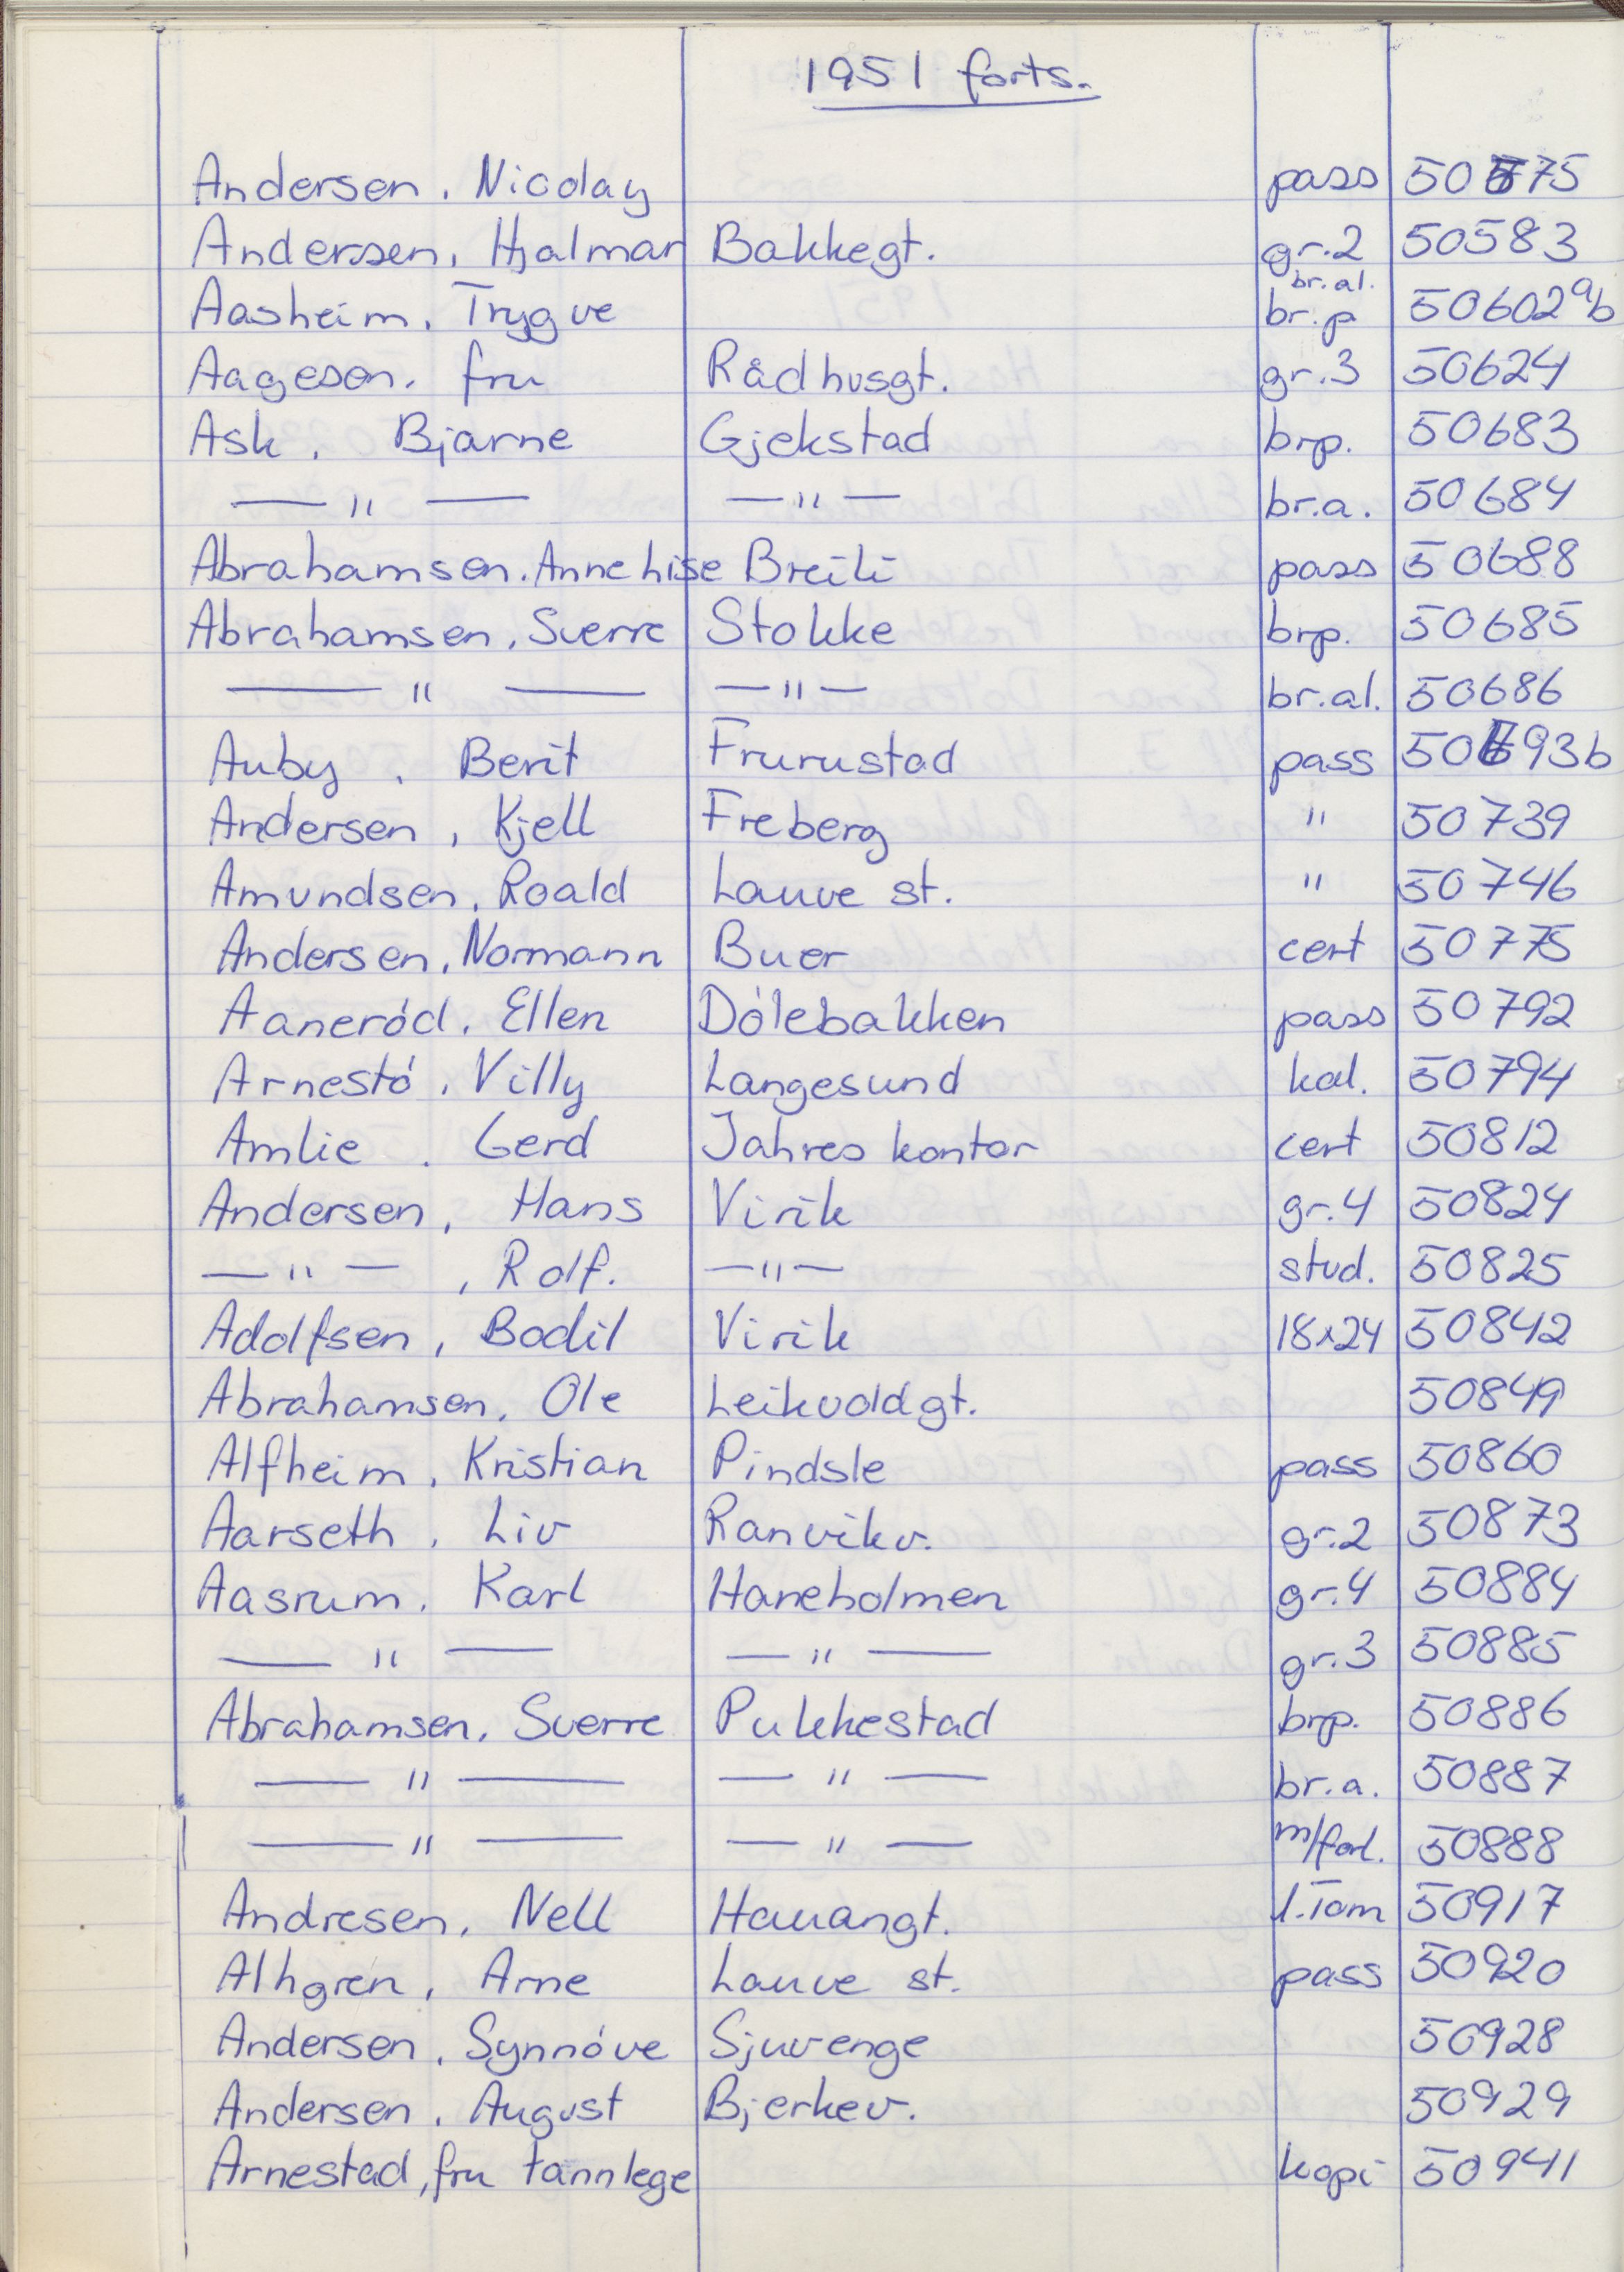 1951 forts.
Andersen, Nicolay pass 50575
Anderssen, Hjalmar Bakkegt. gr.2 50583
Aasheim, Trygve br.al. br.p 50602ab
Aagesen, fru Rådhusgt. gr.3 50624
Ask, Bjarne Gjekstad brp. 50683
— " — — " — br.a. 50684
Abrahamsen, Anne Lise Breili pass 50688
Abrahamsen, Sverre Stokke brp. 50685
— " — — " — br.al. 50686
Auby, Berit Frurustad pass 50693b
Andersen, Kjell Freberg " 50739
Amundsen, Roald Lauve st. " 50746
Andersen, Normann Buer cert 50775
Aaneród, Ellen Dólebakken pass 50792
Arnestó, Villy Langesund kal. 50794
Amlie, Gerd Jahres kontor cert 50812
Andersen, Hans Virik gr.4 50824
— " — , Rolf. — " — stud. 50825
Adolfsen, Bodil Virik 18x24 50842
Abrahamsen, Ole Leikvoldgt. 50849
Alfheim, Kristian Pindsle pass 50860
Aarseth, Liv Ranvikv. gr.2 50873
Aasrum, Karl Haneholmen gr.4 50884
— " — — " — gr.3 50885
Abrahamsen, Sverre Pukkestad brp. 50886
— " — — " — br.a. 50887
— " — — " — m/forl. 50888
Andresen, Nell Hauangt. 1.Tom 50917
Alhgren, Arne Lauve st. pass 50920
Andersen, Synnóve Sjuvenge 50928
Andersen, August Bjerkev. 50929
Arnestad, fru tannlege kopi 50941